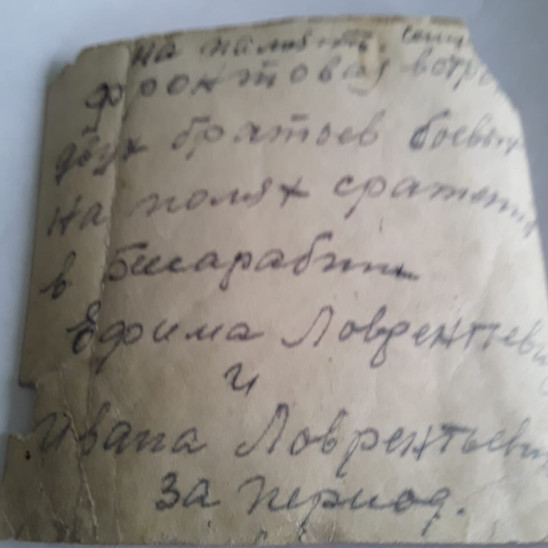 на память.
фронтовая встре
двух братьев боевых
на полях сражения
в Бисарабии
Ефима Ловрентьеви
и
Ивана Ловрентьеви
за период.